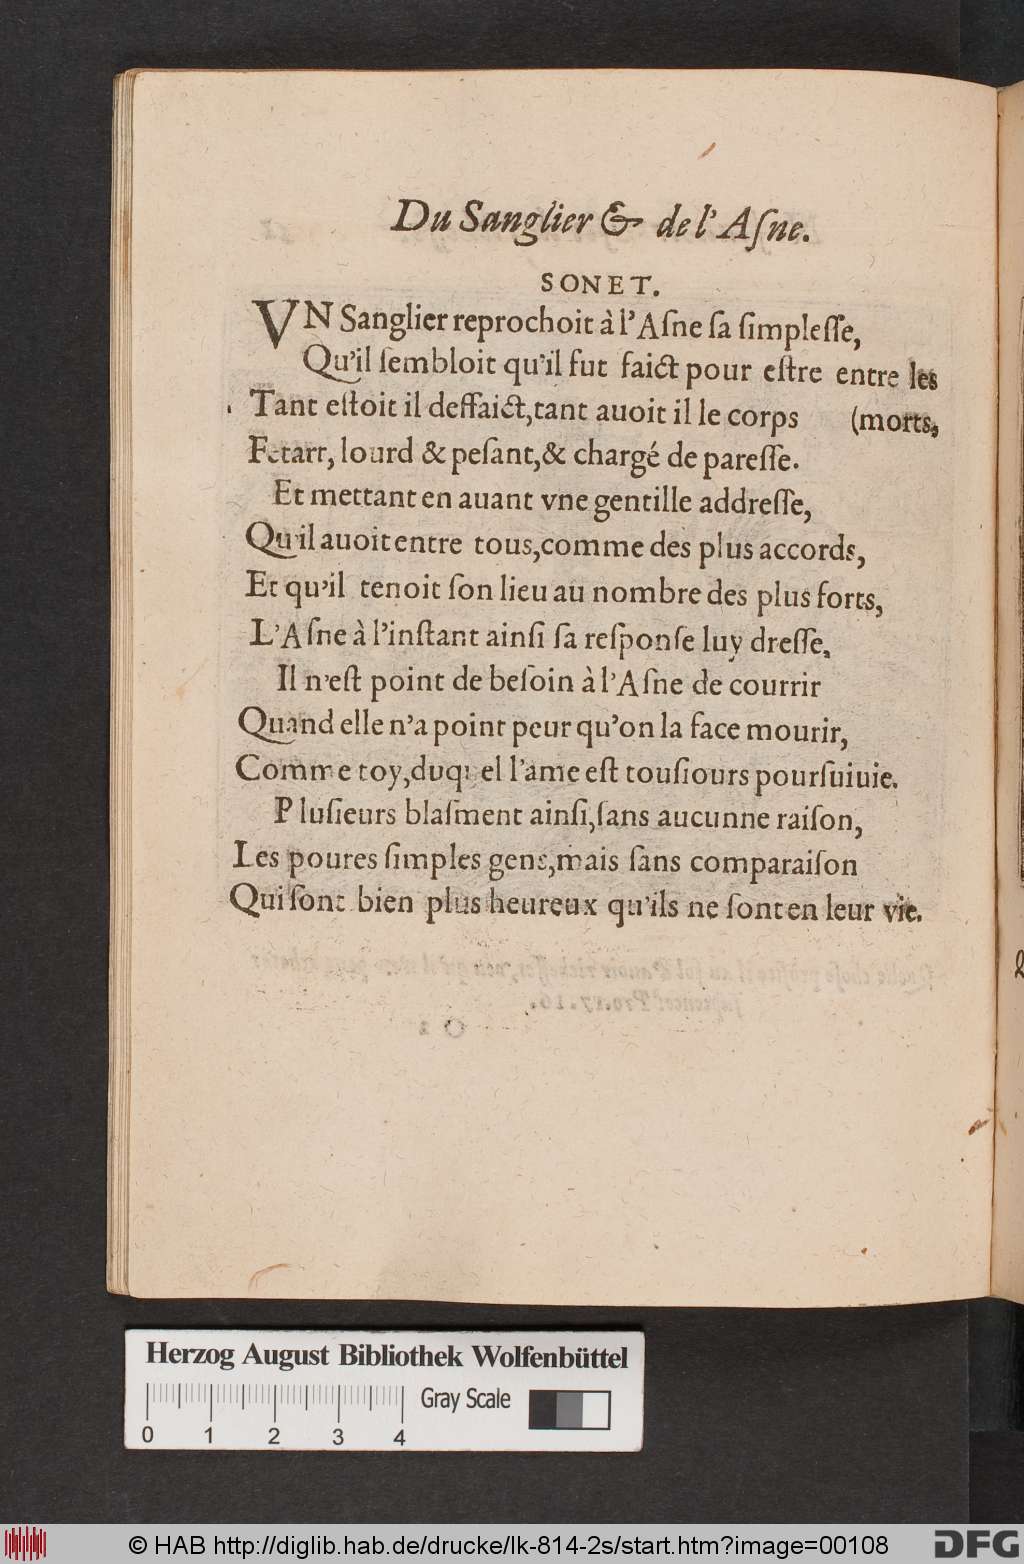 Du Sanglier & de l'Aſne.
SONET.
VN Sanglier reprochoit à l'Aſne ſa ſimpleſſe,
Qu'il ſembloit qu'il fut faict pour eſtre entre les
Tant eſtoit il deffaict, tant auoit il le corps (morts,
Fetart, lourd & peſant, & chargé de pareſſe.
Et mettant en auant vne gentille addreſſe,
Qu'il auoit entre tous, comme des plus accords,
Et qu'il tenoit ſon lieu au nombre des plus forts,
L'Aſne à l'inſtant ainſi ſa reſponſe luy dreſſe,
Il n'eſt point de beſoin à l'Aſne de courrir
Quand elle n'a point peur qu'on la face mourir,
Comme toy, duquel l'ame eſt touſiours pourſuiuie.
Pluſieurs blaſment ainſi, ſans aucunne raiſon,
Les poures ſimples gens, mais ſans comparaiſon
Qui ſont bien plus heureux qu'ils ne ſont en leur vie.
Herzog August Bibliothek Wolfenbüttel
Gray Scale
0 1 2 3 4
© HAB http://diglib.hab.de/drucke/lk-814-2s/start.htm?image=00108
DFG